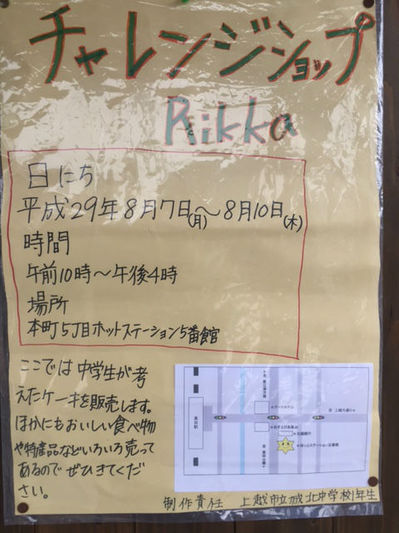 チャレンジショップ
Rikka
日にち
平成29年8月7日(月)～8月10日(木)
時間
午前10時～午後4時
場所
本町5丁目ホットステーション5番館
ここでは中学生が考
えたケーキを販売します。
ほかにもおいしい食べ物
や特産品などいろいろ売って
あるのでぜひきてくだ
さい。
制作責任 上越市立城北中学校1年生